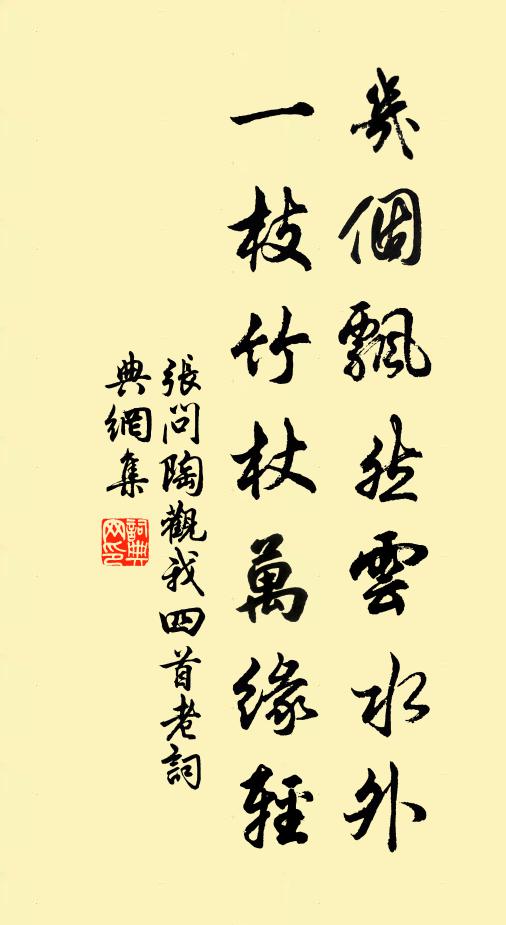 幾個飄然雲水外
一枝竹杖萬緣輕
張問陶觀我四首老詞
典網集
詞典網印